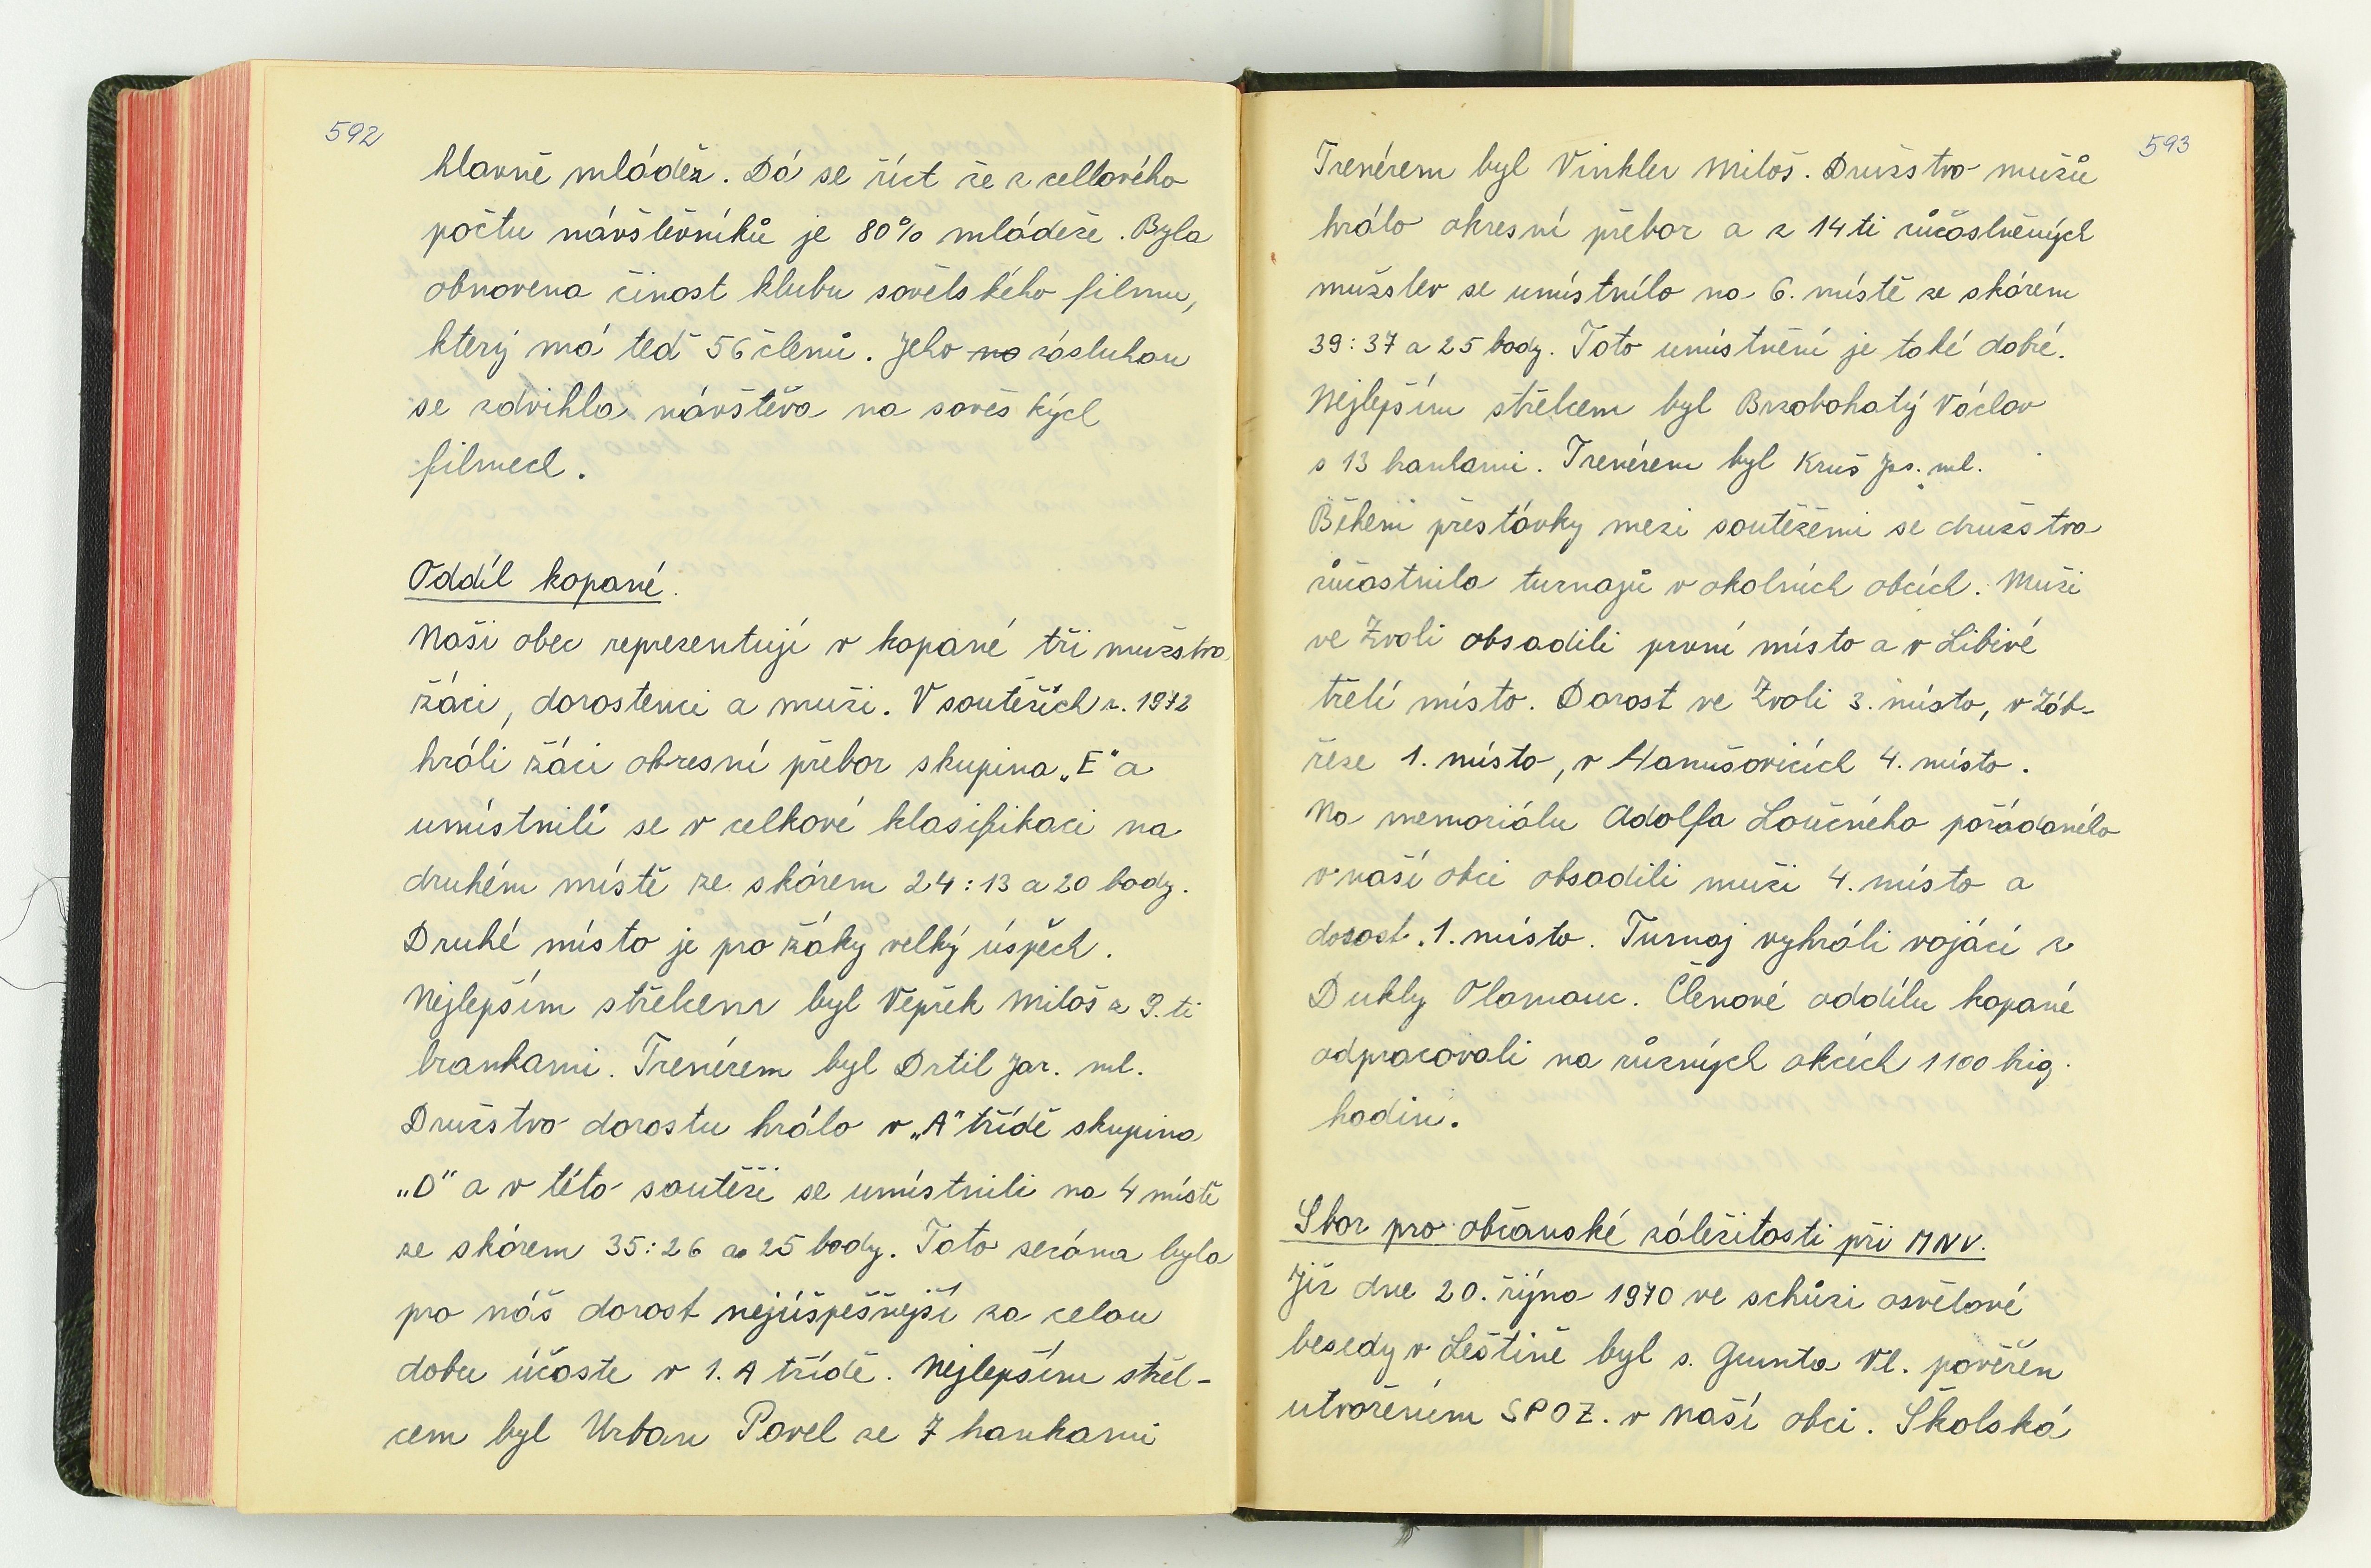 592
hlavně mládež. Dá se říct že z cellového
počtu návštěvníků je 80% mládeže. Byla
obnovena činost klubu sovětského filmu,
který má teď 56 členů. Jeho na zásluhou
se zdvihla návštěva na sověských
filmech.
Oddíl kopané.
Naši obec reprezentují v kopané tři mužstva
žáci, dorostenci a muži. V soutěžích r. 1972
hráli žáci okresní přebor skupina „E" a
umístnili se v celkové klasifikaci na
druhém místě ze skórem 24:13 a 20 body.
Druhé místo je pro žáky velký úspěch.
Nejlepším střelcem byl Vepřek Miloš z 9.ti
brankami. Trenérem byl Drtil Jar. ml.
Družstvo dorostu hrálo v „A" třídě skupina
„D" a v této soutěži se umístnili na 4 místě
ze skórem 35:26 a 25 body. Tato sezóna byla
pro náš dorost nejúspěšnější za celou
dobu účaste v 1. A třídě. Nejlepším střel-
cem byl Urban Pavel se 7 brankami
593
Trenérem byl Vinkler Miloš. Družstvo mužů
hrálo okresní přebor a z 14ti zůčastněných
mužstev se umístnilo na 6. místě ze skórem
39:37 a 25 body. Toto umístnění je také dobré.
Nejlepším střelcem byl Brzobohatý Václav
s 13 brankami. Trenérem byl Kruš Jos. ml.
Během přestávky mezi soutěžemi se družstva
zůčastnila turnajů v okolních obcích. Muži
ve Zvoli obsadili první místo a v Libivé
třetí místo. Dorost ve Zvoli 3. místo, v Záb-
řeze 1. místo, v Hanušovicích 4. místo.
Na memoriálu Adolfa Loučného pořádaného
v naší obci obsadili muži 4. místo a
dorost 1. místo. Turnaj vyhráli vojáci z
Dukly Olomouc. Členové oddílu kopané
odpracovali na různých akcích 1100 brig.
hodin.
Sbor pro občanské záležitosti při MNV.
Již dne 20. října 1970 ve schůzi osvětové
besedy v Leštině byl s. Gunta Vl. pověřen
utvořením SPOZ. v naší obci. Školská